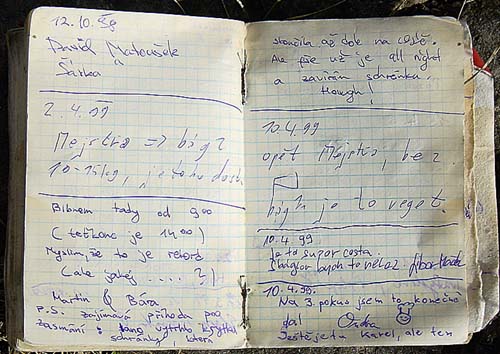 12.10.98
David Matoušek
a
Šárka
2.4.99
Mejstřík => bág?
10-15kg, je to ho dost.
Blbnem tady od 900
(teďkono je 1400)
Myslim, že to je rekord
(ale jakej ..... ?)
Martin & Bára
P.S. zajímavá příhoda pro
zasmání: Lano vytrhlo krytku
schránky, která
skončila až dole na cestě.
Ale vše už je all right
a zavírám schránku.
Hough!
10.4.99
opět Mejstřík, bez
bágh je to veget.
10.4.99
Je to super cesta
bych to nelezl.
10.4.99.
Na 3. pokus jsem to konečno
dal Ondra
Ještě je tu Karel, ale ten